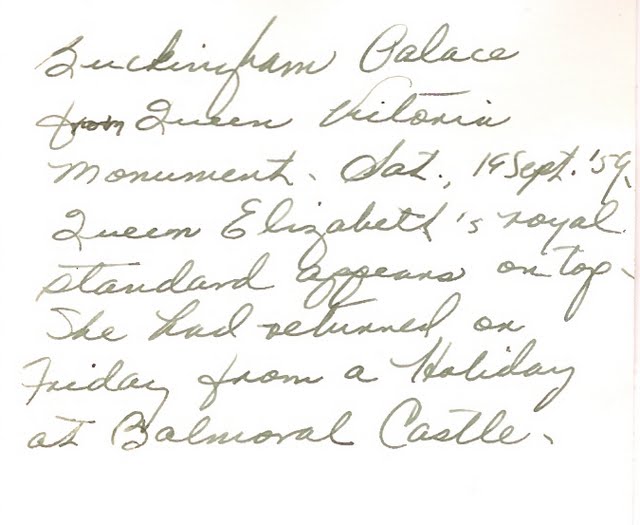 Buckingham Palace
from Queen Victoria
Monument. Sat., 19 Sept. '59.
Queen Elizabeth's royal
standard appears on top.
She had returned on
Friday from a Holiday
at Balmoral Castle.